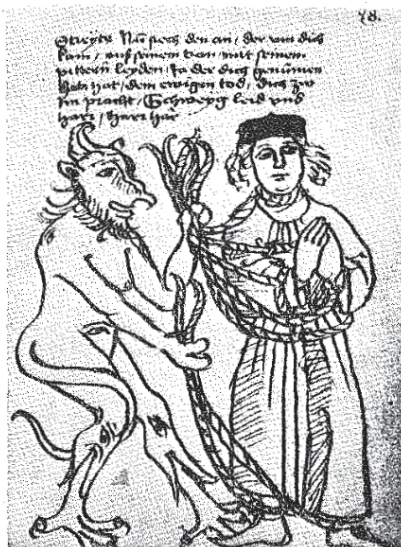 78.
Streyts Nu siech den an, der um dich
kam, auß seinem tron mit seinem
pittern leyden, Ja der dich genümen
hat, dem ewigen tod, dich zw
im pracht, Schweyg leid vnd
hart, harr